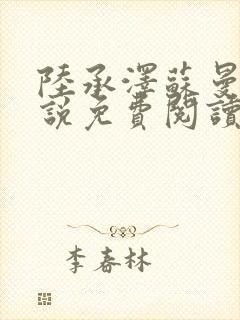 陸承澤蘇曼
說免費閱讀
李春林